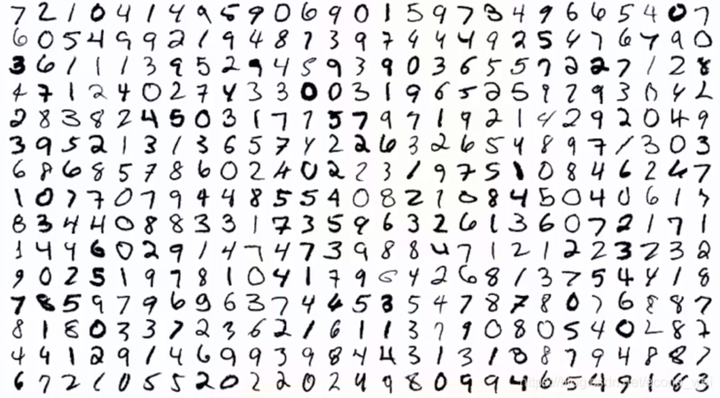 7 2 1 0 4 1 4 9 5 9 0 6 9 0 1 5 9 7 3 4 9 6 6 5 4 0 7
6 0 5 4 9 9 2 1 9 4 8 7 3 9 7 4 4 4 9 2 5 4 7 6 7 9 0
3 6 1 1 1 3 9 5 2 9 4 5 9 3 9 0 3 6 5 5 7 2 2 7 1 2 8
4 7 1 2 4 0 2 7 4 3 3 0 0 3 1 9 6 5 2 5 9 7 9 3 0 4 2
2 8 3 8 2 4 5 0 3 1 7 7 5 7 9 7 1 9 2 1 4 2 9 2 0 4 9
3 9 5 2 1 3 1 3 6 5 7 4 2 2 6 3 2 6 5 4 8 9 7 1 3 0 3
6 8 6 8 5 7 8 6 0 2 4 0 2 2 3 1 9 7 5 1 0 8 4 6 2 4 7
1 0 7 7 0 7 9 4 4 8 5 5 4 0 8 2 7 0 8 4 5 0 4 0 6 1 3
8 3 4 4 0 8 8 3 3 1 7 3 5 9 6 3 2 6 1 3 6 0 7 2 1 7 1
1 4 4 6 0 2 9 1 4 7 4 7 3 9 8 8 4 7 1 2 1 2 2 3 2 3 2
9 0 2 5 1 9 7 8 1 0 4 1 7 9 6 4 2 6 8 1 3 7 5 4 4 1 8
7 8 5 9 7 9 6 9 6 3 7 4 4 5 3 5 4 7 8 7 8 0 7 6 8 8 7
8 1 8 0 3 3 7 2 3 6 2 1 6 1 1 3 7 9 0 8 0 5 4 0 2 8 7
4 4 1 2 9 1 4 6 9 9 3 9 8 4 4 3 1 3 1 8 8 7 9 4 8 8 7
6 7 2 1 0 5 5 2 0 2 2 0 2 4 9 8 0 9 9 4 6 5 4 9 1 8 3